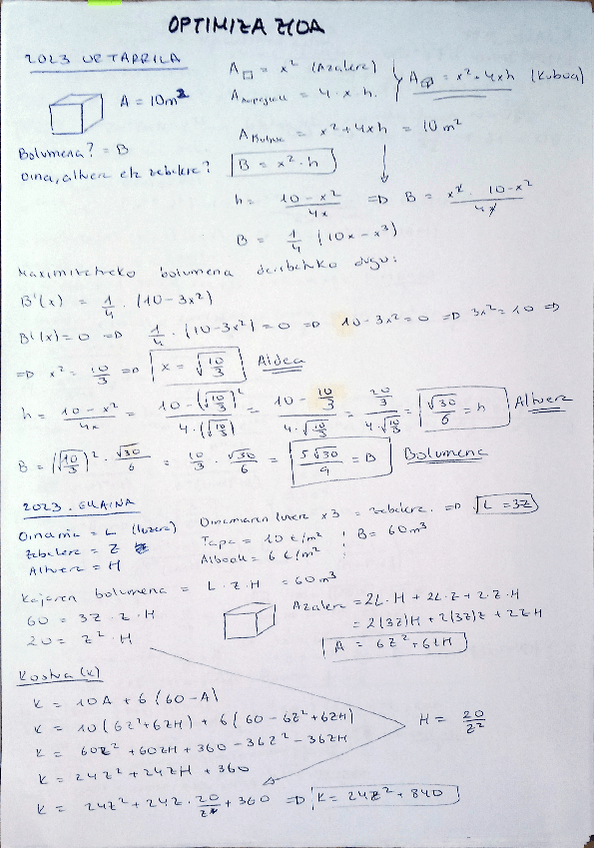 OPTIMIZAZIOA
2023 URTARRILA
A = 10m²
A□ = x² (Azalera)
A = 4 · x · h.
A = x² + 4xh (Kuboa)
A = x² + 4xh = 10 m²
Bolumena? = B
Oina, altuera eta zabalera?
B = x² · h
h = (10 - x²)/4x => B = x² · (10 - x²)/4x
B = 1/4 (10x - x³)
Maximizatzeko bolumena deribatuko dugu:
B'(x) = 1/4 · (10 - 3x²)
B'(x) = 0 => 1/4 · (10 - 3x²) = 0 => 10 - 3x² = 0 => 3x² = 10 =>
=> x² = 10/3 => x = √(10/3) Aldea
h = (10 - x²)/4x = (10 - (√(10/3))²)/(4 · (√(10/3))) = (10 - 10/3)/(4 · √(10/3)) = (20/3)/(4 · √(10/3)) = √30/6 = h Altuera
B = (√(10/3))² · √30/6 = 10/3 · √30/6 = 5√30/9 = B Bolumena
2023. EKAINA
Oinarria = L (luzera)
Zabalera = Z
Altuera = H
Oinarriaren luzera x3 = zabalera. => L = 3Z
Tapa = 10 €/m²
Alboak = 6 €/m²
B = 60m³
Kajaren bolumena = L · Z · H = 60 m³
60 = 3Z · Z · H
20 = Z² · H
Azalera = 2L · H + 2L · Z + 2 · Z · H
= 2(3Z)H + 2(3Z)Z + 2ZH
A = 6Z² + 6ZH
Kostua (K)
K = 10A + 6(60 - A)
K = 10(6Z² + 6ZH) + 6(60 - 6Z² + 6ZH)
K = 60Z² + 60ZH + 360 - 36Z² - 36ZH
K = 24Z² + 24ZH + 360
H = 20/Z²
K = 24Z² + 24Z · 20/Z² + 360 => K = 24Z² + 840